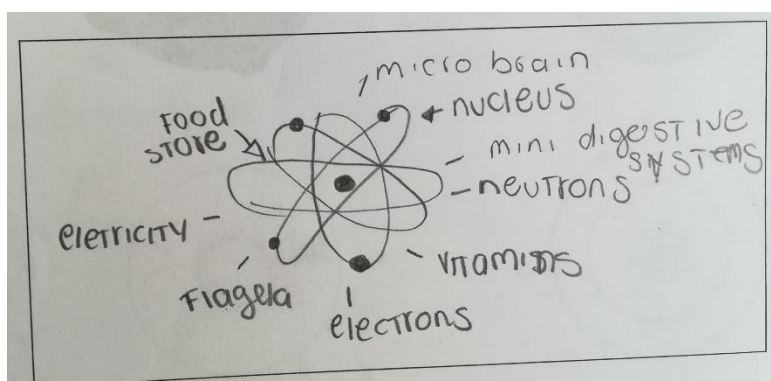 micro brain
nucleus
Food
store
mini digestive
systems
neutrons
eletricity
vitamins
Flagela
electrons